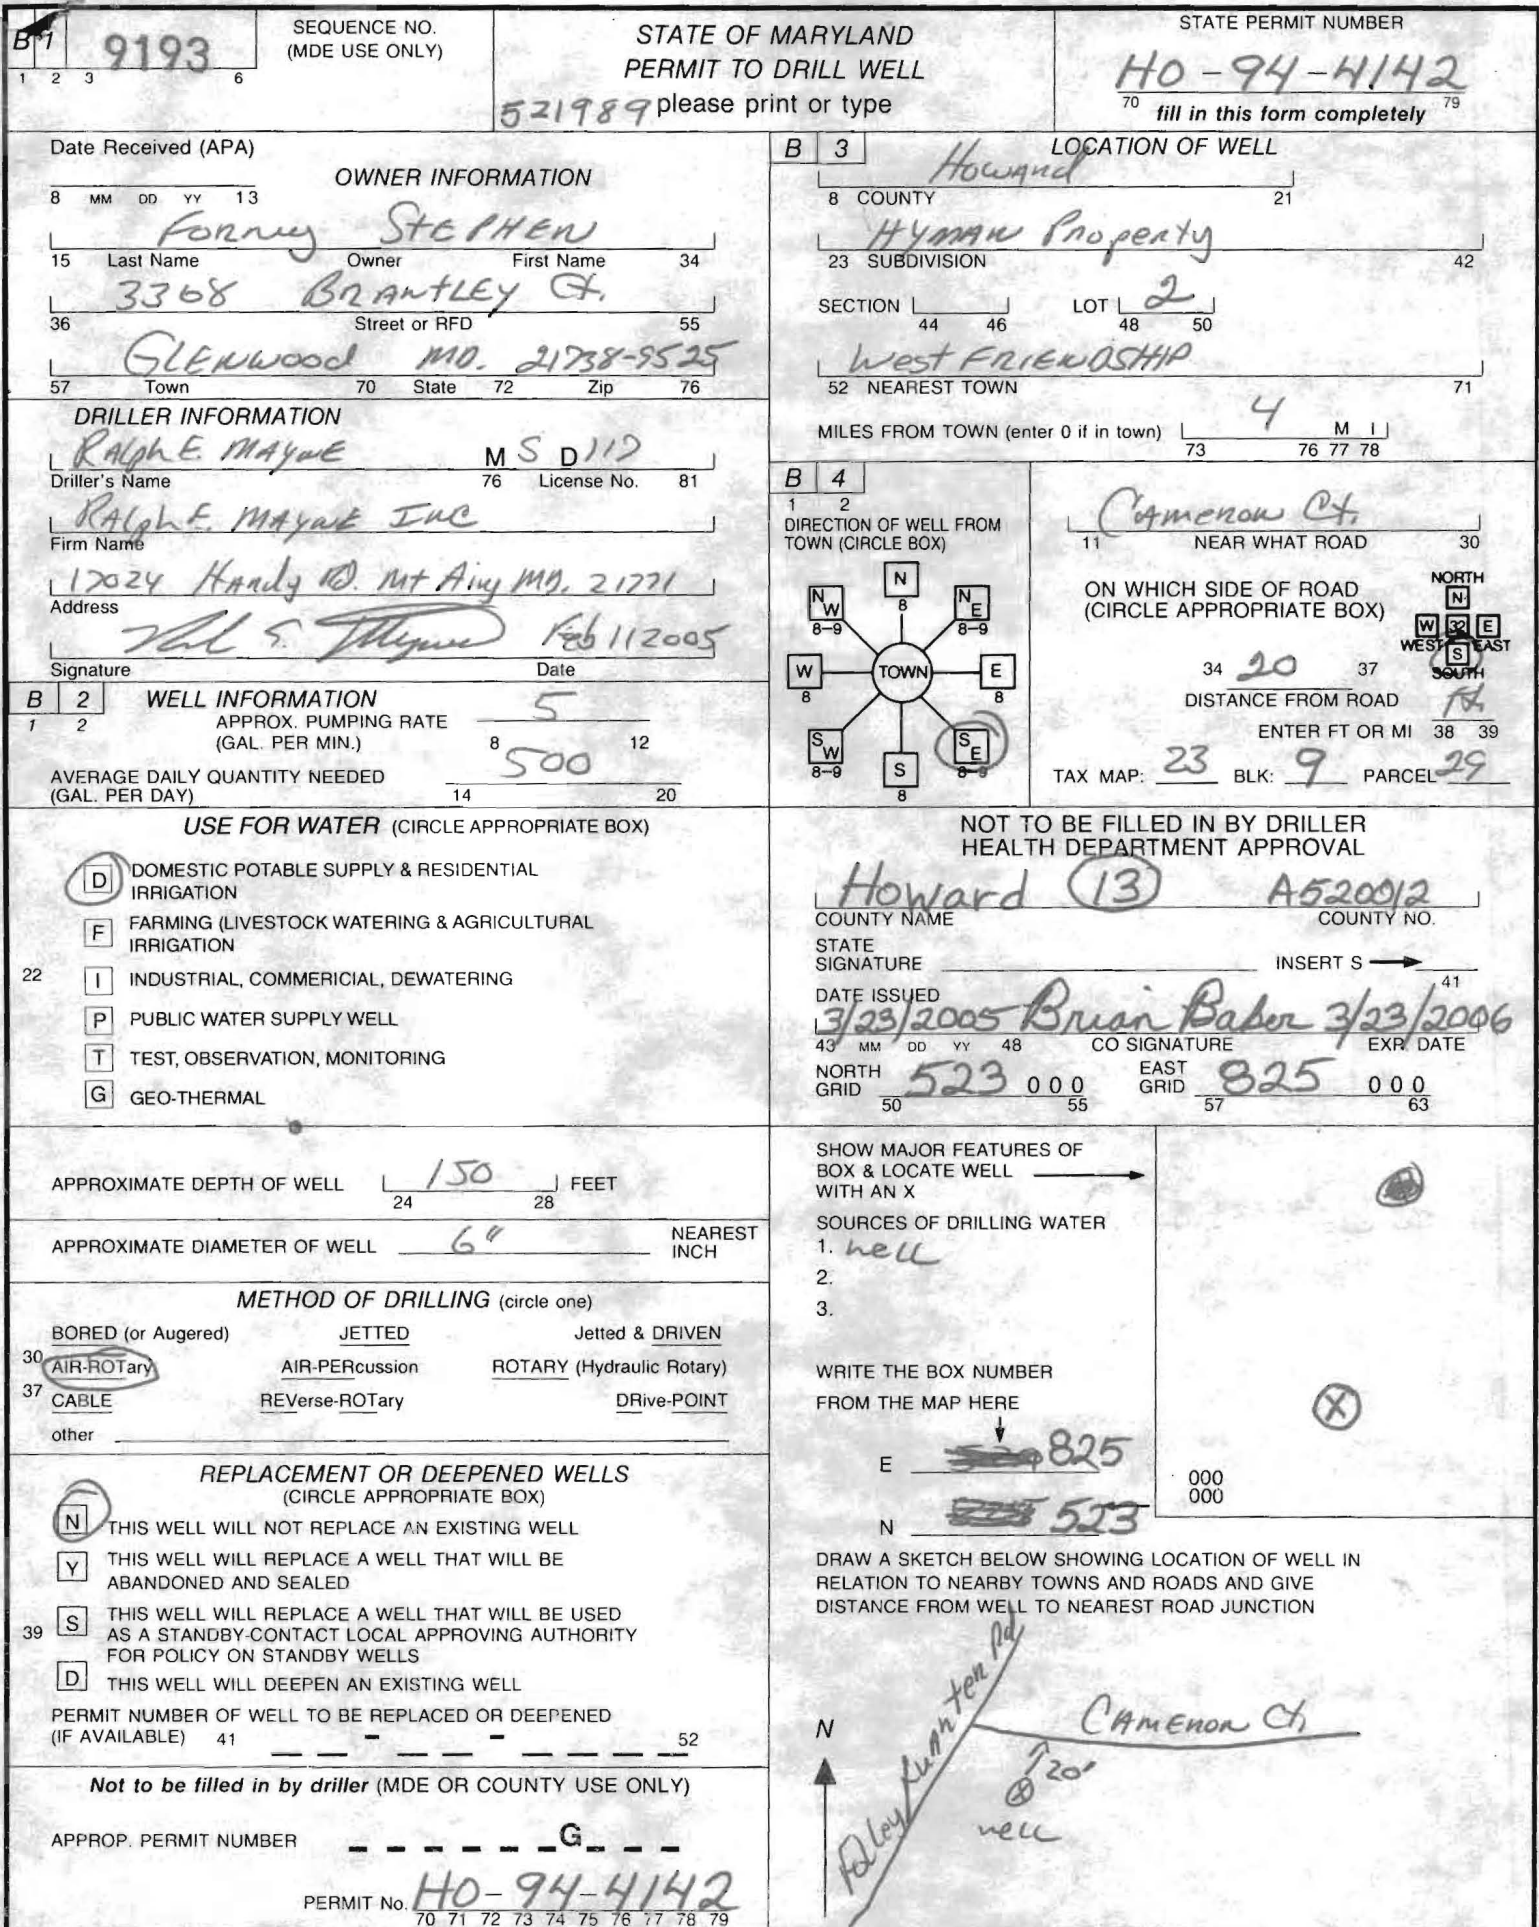 B 1
1 2 3 6
9193
SEQUENCE NO.
(MDE USE ONLY)
STATE OF MARYLAND
PERMIT TO DRILL WELL
521989 please print or type
STATE PERMIT NUMBER
HO-94-4142
70 79
fill in this form completely
Date Received (APA)
8 MM DD YY 13
OWNER INFORMATION
STEPHEN
15 Last Name Owner First Name 34
3368 BRANTLEY Ct.
36 Street or RFD 55
GLENWOOD MD. 21738-9525
57 Town 70 State 72 Zip 76
DRILLER INFORMATION
RALPH E. MAYNE M S D 117
Driller's Name 76 License No. 81
RALPH E. MAYNE INC
Firm Name
17024 Hardy Rd. Mt Airy MD. 21771
Address
Feb 11 2005
Signature Date
B 2
1 2
WELL INFORMATION
APPROX. PUMPING RATE 5
(GAL. PER MIN.) 8 12
AVERAGE DAILY QUANTITY NEEDED 500
(GAL. PER DAY) 14 20
USE FOR WATER (CIRCLE APPROPRIATE BOX)
D DOMESTIC POTABLE SUPPLY & RESIDENTIAL
IRRIGATION
F FARMING (LIVESTOCK WATERING & AGRICULTURAL
IRRIGATION
22 I INDUSTRIAL, COMMERICIAL, DEWATERING
P PUBLIC WATER SUPPLY WELL
T TEST, OBSERVATION, MONITORING
G GEO-THERMAL
APPROXIMATE DEPTH OF WELL 150 FEET
24 28
APPROXIMATE DIAMETER OF WELL 6" NEAREST
INCH
METHOD OF DRILLING (circle one)
BORED (or Augered) JETTED Jetted & DRIVEN
30 AIR-ROTary AIR-PERcussion ROTARY (Hydraulic Rotary)
37 CABLE REVerse-ROTary DRive-POINT
other
REPLACEMENT OR DEEPENED WELLS
(CIRCLE APPROPRIATE BOX)
N THIS WELL WILL NOT REPLACE AN EXISTING WELL
Y THIS WELL WILL REPLACE A WELL THAT WILL BE
ABANDONED AND SEALED
39 S THIS WELL WILL REPLACE A WELL THAT WILL BE USED
AS A STANDBY-CONTACT LOCAL APPROVING AUTHORITY
FOR POLICY ON STANDBY WELLS
D THIS WELL WILL DEEPEN AN EXISTING WELL
PERMIT NUMBER OF WELL TO BE REPLACED OR DEEPENED
(IF AVAILABLE) 41 - - 52
Not to be filled in by driller (MDE OR COUNTY USE ONLY)
APPROP. PERMIT NUMBER G
PERMIT No. HO-94-4142
70 71 72 73 74 75 76 77 78 79
B 3
LOCATION OF WELL
Howard
8 COUNTY 21
HYMAN Property
23 SUBDIVISION 42
SECTION LOT 2
44 46 48 50
West FRIENDSHIP
52 NEAREST TOWN 71
MILES FROM TOWN (enter 0 if in town) 4 M I
73 76 77 78
B 4
1 2
DIRECTION OF WELL FROM
TOWN (CIRCLE BOX)
N
8
NW
8-9
NE
8-9
W
8
TOWN
E
8
SW
8-9
SE
8-9
S
8
Cameron Ct.
11 NEAR WHAT ROAD 30
ON WHICH SIDE OF ROAD
(CIRCLE APPROPRIATE BOX)
NORTH
N
W 32 E
WEST EAST
S
SOUTH
34 20 37
DISTANCE FROM ROAD
ft
ENTER FT OR MI 38 39
TAX MAP: 23 BLK: 9 PARCEL 29
NOT TO BE FILLED IN BY DRILLER
HEALTH DEPARTMENT APPROVAL
Howard 13 A520012
COUNTY NAME COUNTY NO.
STATE
SIGNATURE INSERT S
41
DATE ISSUED
3/23/2005 Brian Baker 3/23/2006
43 MM DD YY 48 CO SIGNATURE EXP. DATE
NORTH GRID 523 000 EAST GRID 825 000
50 55 57 63
SHOW MAJOR FEATURES OF
BOX & LOCATE WELL
WITH AN X
SOURCES OF DRILLING WATER
1. well
2.
3.
WRITE THE BOX NUMBER
FROM THE MAP HERE
E 825
N 523
X
000
000
DRAW A SKETCH BELOW SHOWING LOCATION OF WELL IN
RELATION TO NEARBY TOWNS AND ROADS AND GIVE
DISTANCE FROM WELL TO NEAREST ROAD JUNCTION
N
Rd
Cameron Ct
20'
well